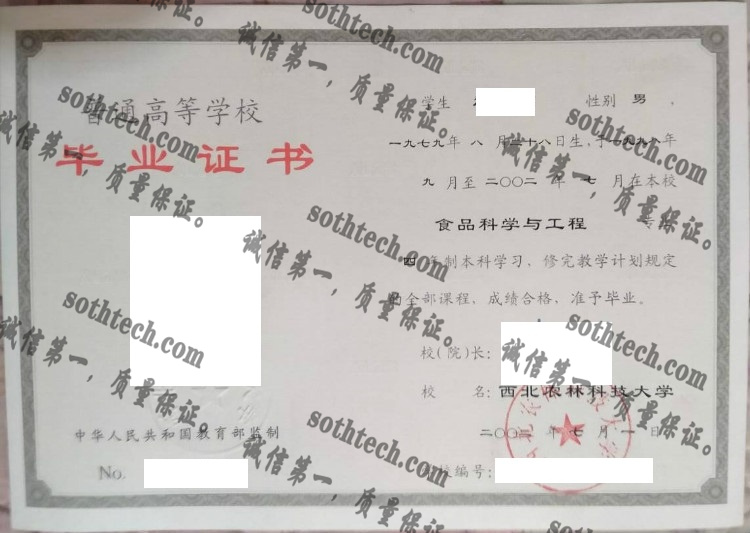 普通高等学校
毕业证书
中华人民共和国教育部监制
No.
学生 性别 男，
一九七九年 八 月二十八日生，于一九九八年
九 月至 二〇〇二 年 七 月在本校
食品科学与工程 专
四 年制本科学习，修完教学计划规定
的全部课程，成绩合格，准予毕业。
校（院）长：
校 名：西北农林科技大学
二〇〇二 年 七 月 一 日
编号：
sothtech.com
诚信第一，质量保证。
sothtech.com
诚信第一，质量保证。
sothtech.com
诚信第一，质量保证。
sothtech.com
诚信第一，质量保证。
sothtech.com
诚信第一，质量保证。
sothtech.com
诚信第一，质量保证。
sothtech.com
诚信第一，质量保证。
sothtech.com
诚信第一，质量保证。